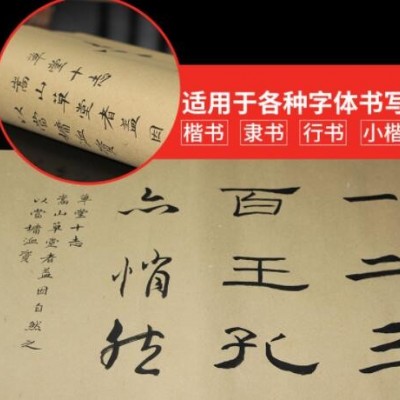 草堂十志
嵩山草堂者盖因
以當墉洫資
适用于各种字体书写
楷书 隶书 行书 小楷
一二三
百王孔
悄然
草堂十志
嵩山草堂者盖因自然之
以當墉洫資